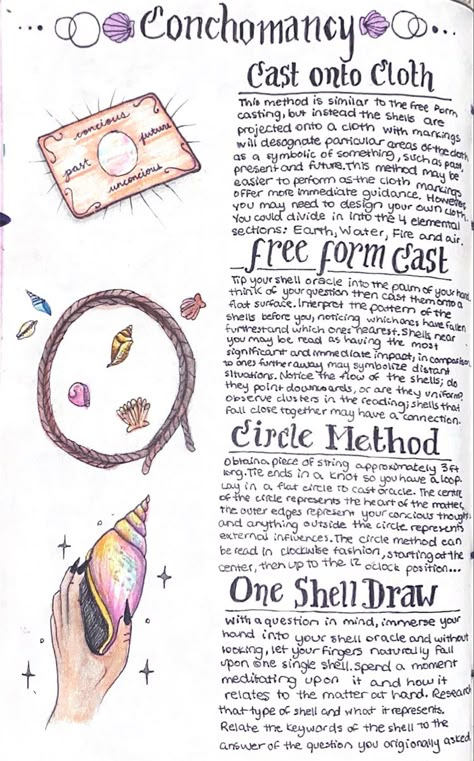 Conchomancy
concious
future
past
unconcious
Cast onto Cloth
This method is similar to the free form
casting, but instead the shells are
projected onto a cloth with markings
will desgnate particular areas of the cloth
as a symbolic of something, such as past,
present and future. This method may be
easier to perform as the cloth markings
offer more immediate guidance. However,
you may need to design your own cloth.
You could divide in into the 4 elemental
sections: Earth, Water, Fire and air.
Free form Cast
Tip your shell oracle into the palm of your hand
think of your question then cast them onto a
flat surface. Interpret the pattern of the
shells before you, noticing which ones have fallen
furthest and which ones nearest. Shells near
you may be read as having the most
significant and immediate impact, in comparison
to ones further away may symbolize distant
situations. Notice the flow of the shells; do
they point downwards, or are they uniform?
observe clusters in the reading; shells that
fall close together may have a connection.
Circle Method
Obtain a piece of string approximately 3ft
long. Tie ends in a knot so you have a loop.
Lay in a flat circle to cast oracle. The centre
of the circle represents the heart of the matter,
the outer edges represent your concious thoughts
and anything outside the circle represents
external influences. The circle method can
be read in clockwise fashion, starting at the
center, then up to the 12 o'clock position...
One Shell Draw
With a question in mind, immerse your
hand into your shell oracle and without
looking, let your fingers naturally fall
upon one single shell. Spend a moment
meditating upon it and how it
relates to the matter at hand. Research
that type of shell and what it represents.
Relate the keywords of the shell to the
answer of the question you origionally asked